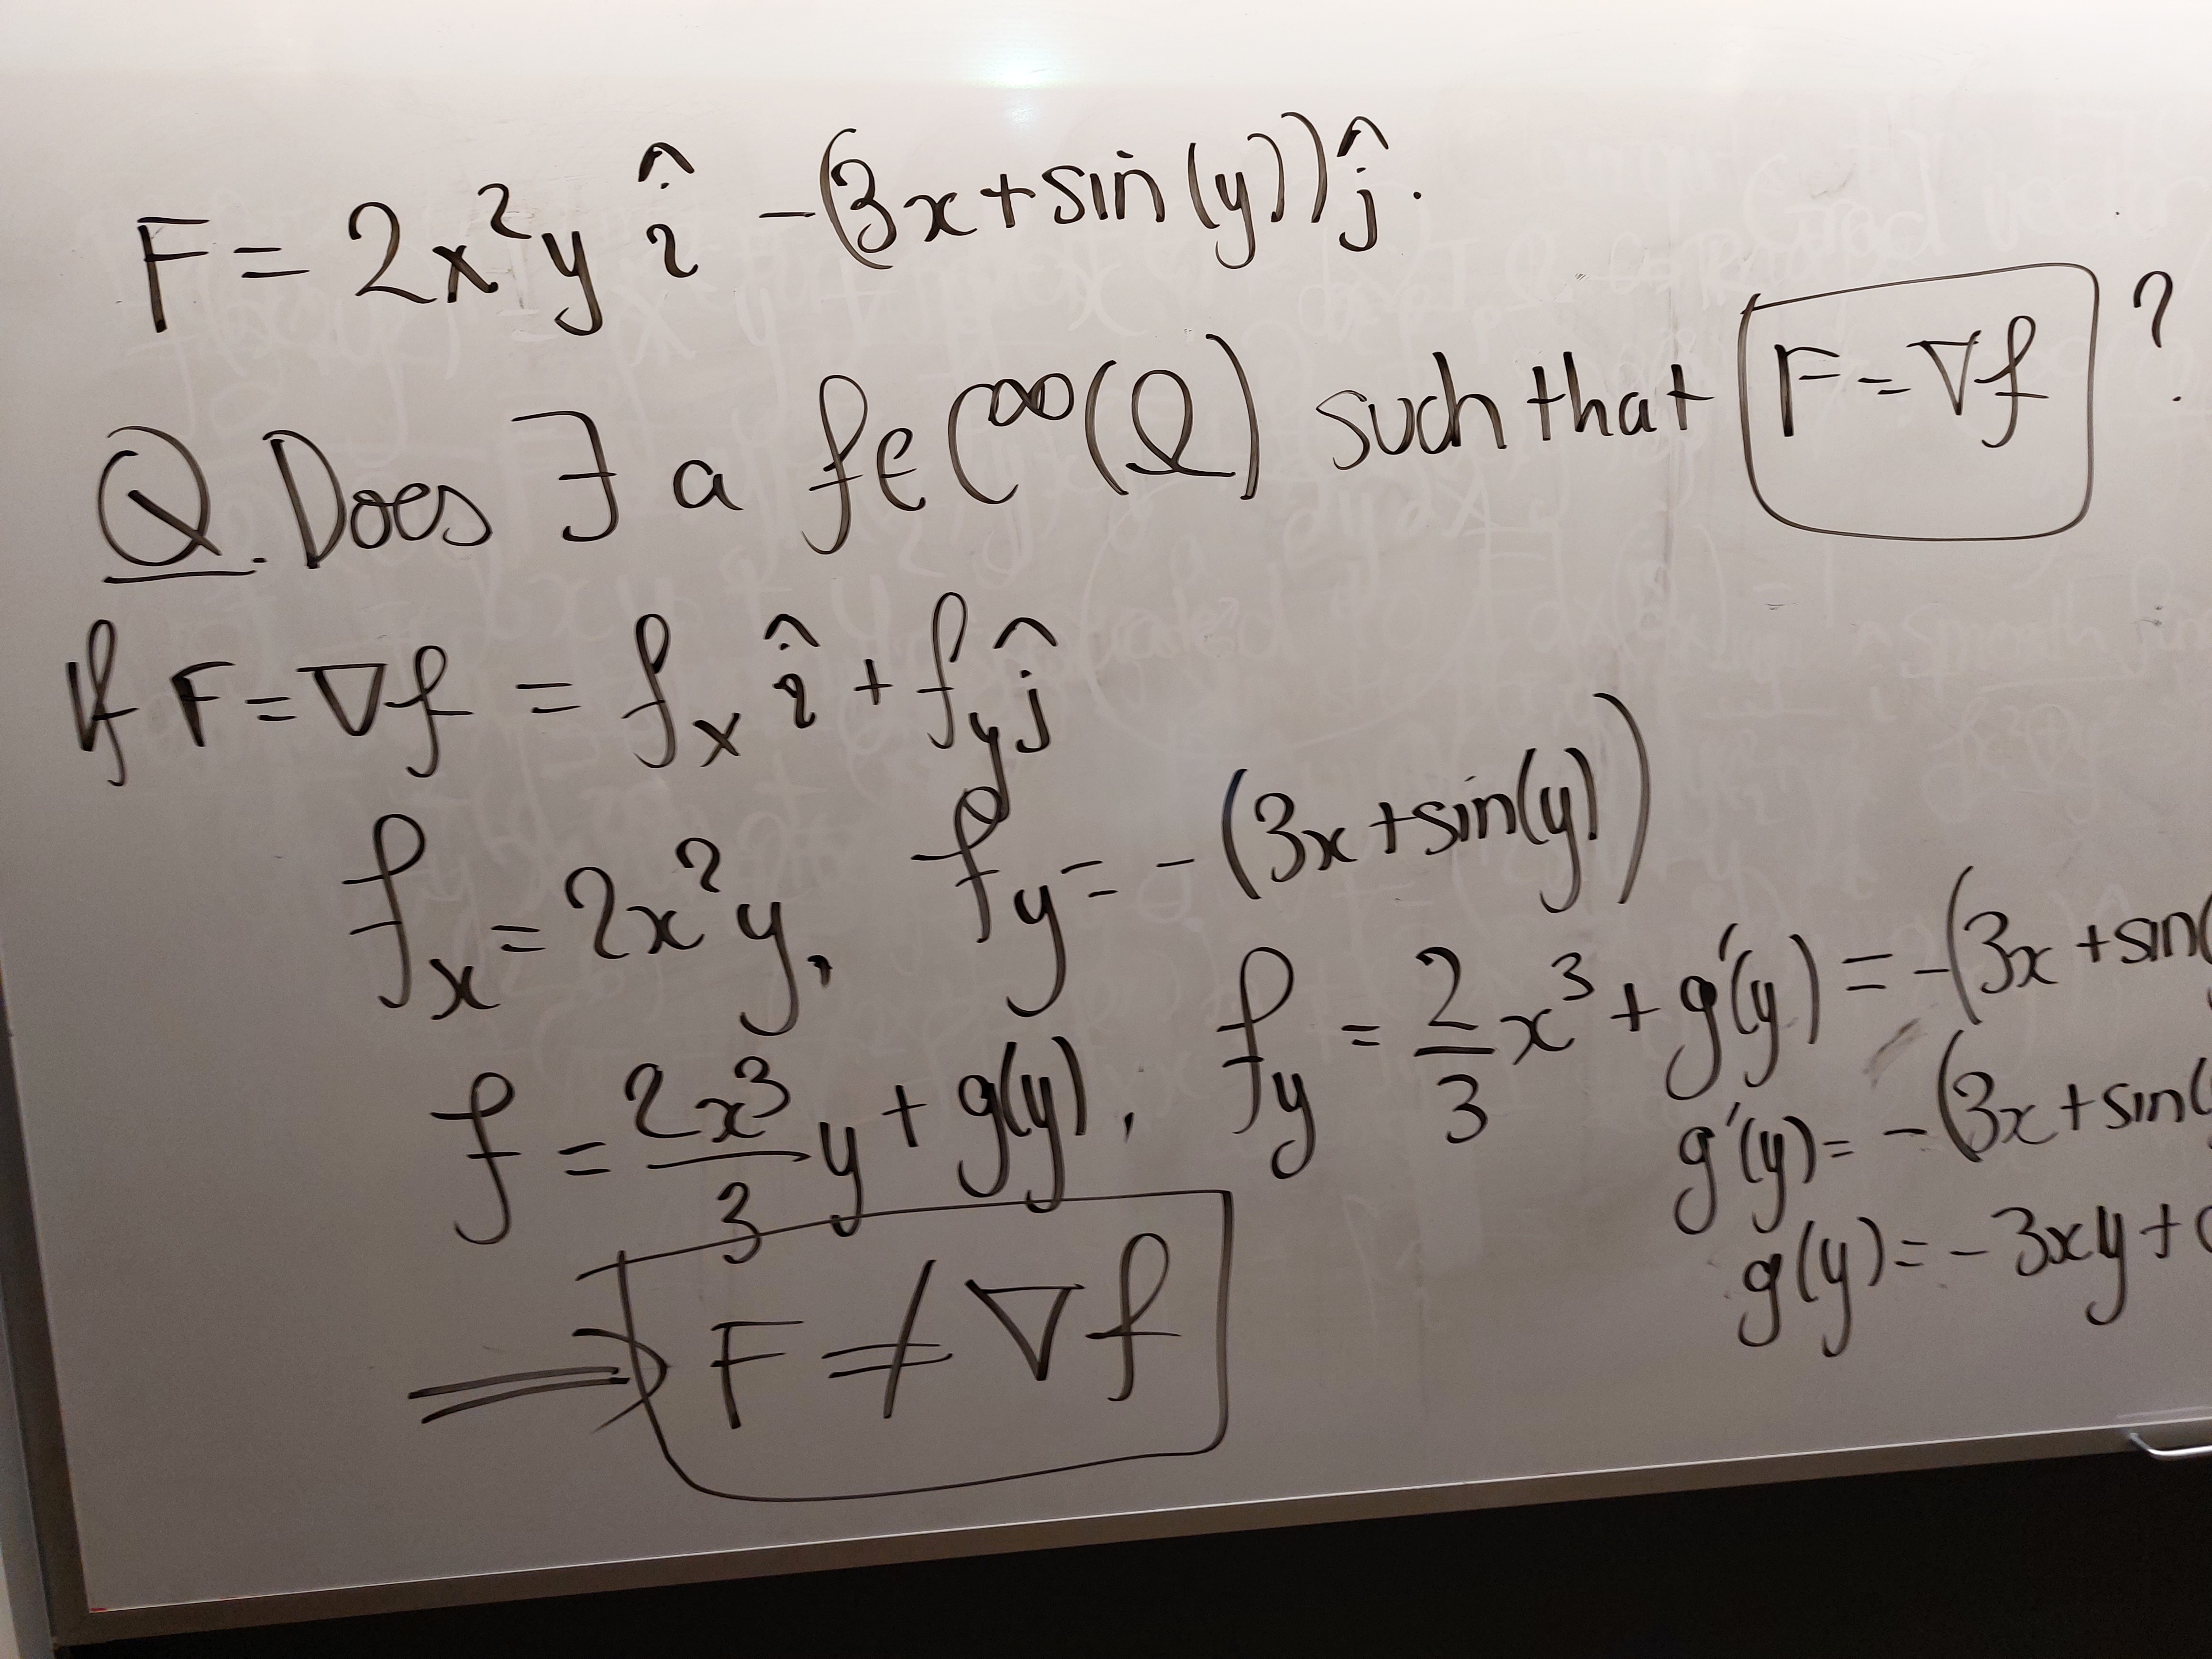 F = 2x²y î -(3x+sin(y))ĵ.
Q. Does ∃ a f∈C^∞(Ω) such that F=∇f ?
If F=∇f = f_x î + f_y ĵ
f_x = 2x²y, f_y = -(3x+sin(y))
f = 2x³/3 y + g(y), f_y = 2/3 x³ + g'(y) = -(3x+sin(
g'(y) = -(3x+sin(
g(y) = -3xy+
⟹ F ≠ ∇f